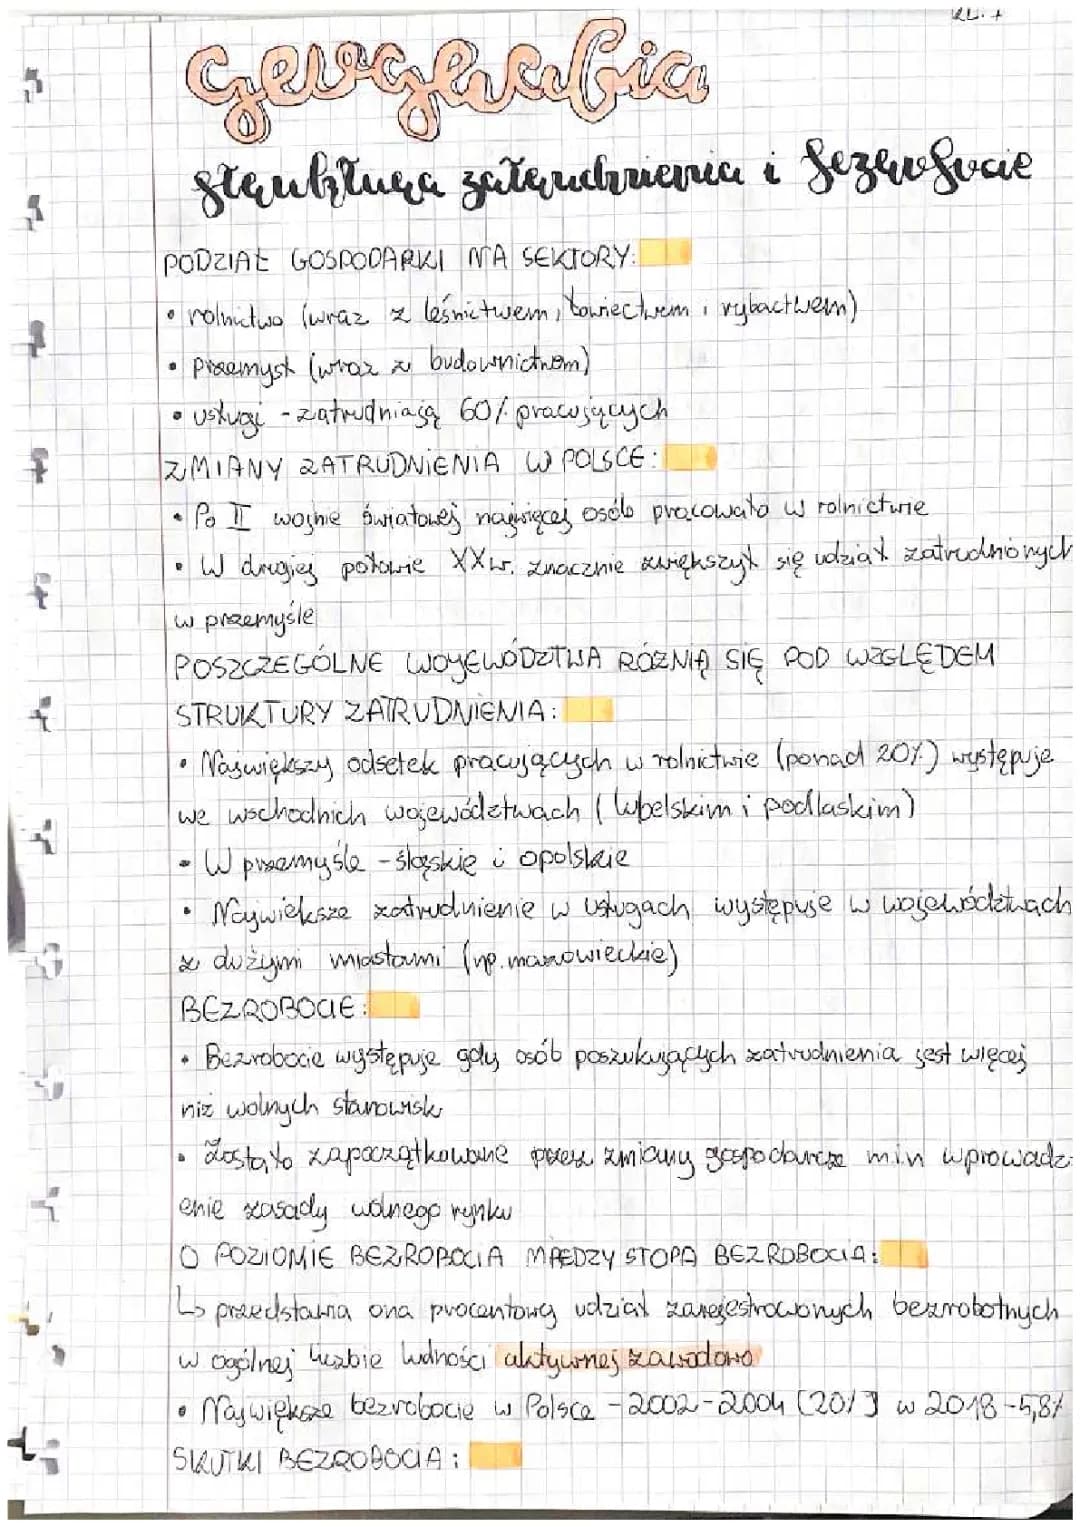 KL. 7
Geografia
struktura zatrudnienia i bezrobocie
PODZIAŁ GOSPODARKI NA SEKTORY:
• rolnictwo (wraz z leśnictwem, łowiectwem i rybactwem)
• przemysł (wraz z budownictwem)
• usługi - zatrudniają 60% pracujących
ZMIANY ZATRUDNIENIA W POLSCE:
• Po II wojnie światowej najwięcej osób pracowało w rolnictwie
• W drugiej połowie XX w. znacznie zwiększył się udział zatrudnionych
w przemyśle
POSZCZEGÓLNE WOJEWÓDZTWA RÓŻNIĄ SIĘ POD WZGLĘDEM
STRUKTURY ZATRUDNIENIA:
• Największy odsetek pracujących w rolnictwie (ponad 20%) występuje
we wschodnich województwach (lubelskim i podlaskim)
• W przemyśle - śląskie i opolskie
• Największe zatrudnienie w usługach występuje w województwach
z dużymi miastami (np. mazowieckie)
BEZROBOCIE:
• Bezrobocie występuje gdy osób poszukujących zatrudnienia jest więcej
niż wolnych stanowisk
• Zostało zapoczątkowane przez zmiany gospodarcze m.in wprowadz-
enie zasady wolnego rynku
O POZIOMIE BEZROBOCIA STOPA BEZROBOCIA:
↳ przedstawia ona procentowy udział zarejestrowanych bezrobotnych
w ogólnej liczbie ludności aktywnej zawodowo
• Największe bezrobocie w Polsce - 2002-2004 (20%) w 2018 - 5,8%
SKUTKI BEZROBOCIA: